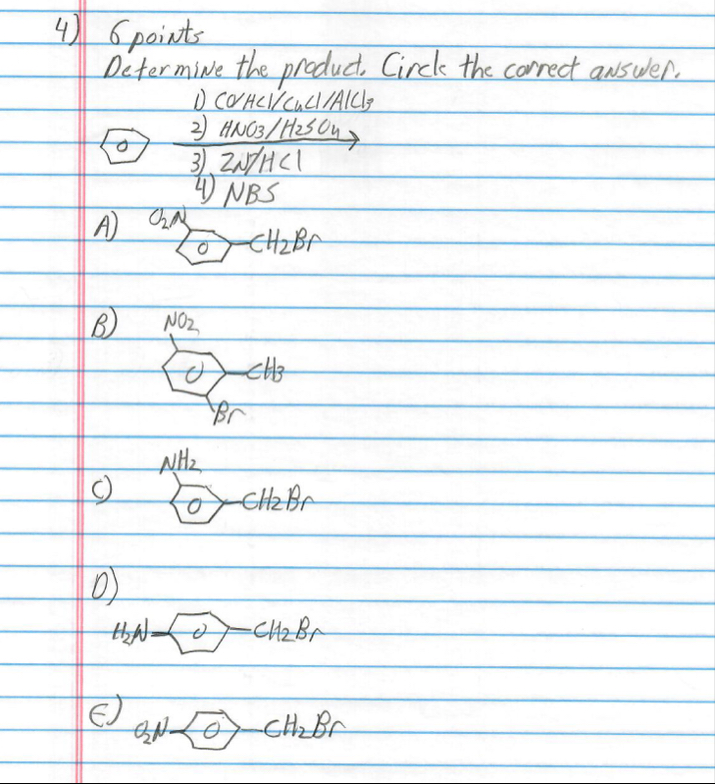 4) 6 points
Determine the product. Circle the correct answer.
1) CO/HCl/CuCl/AlCl3
2) HNO3/H2SO4
3) ZN/HCl
4) NBS
A) O2N CH2Br
B) NO2
CH3
Br
NH2
C) CH2Br
D)
H2N CH2Br
E) O2N CH2Br